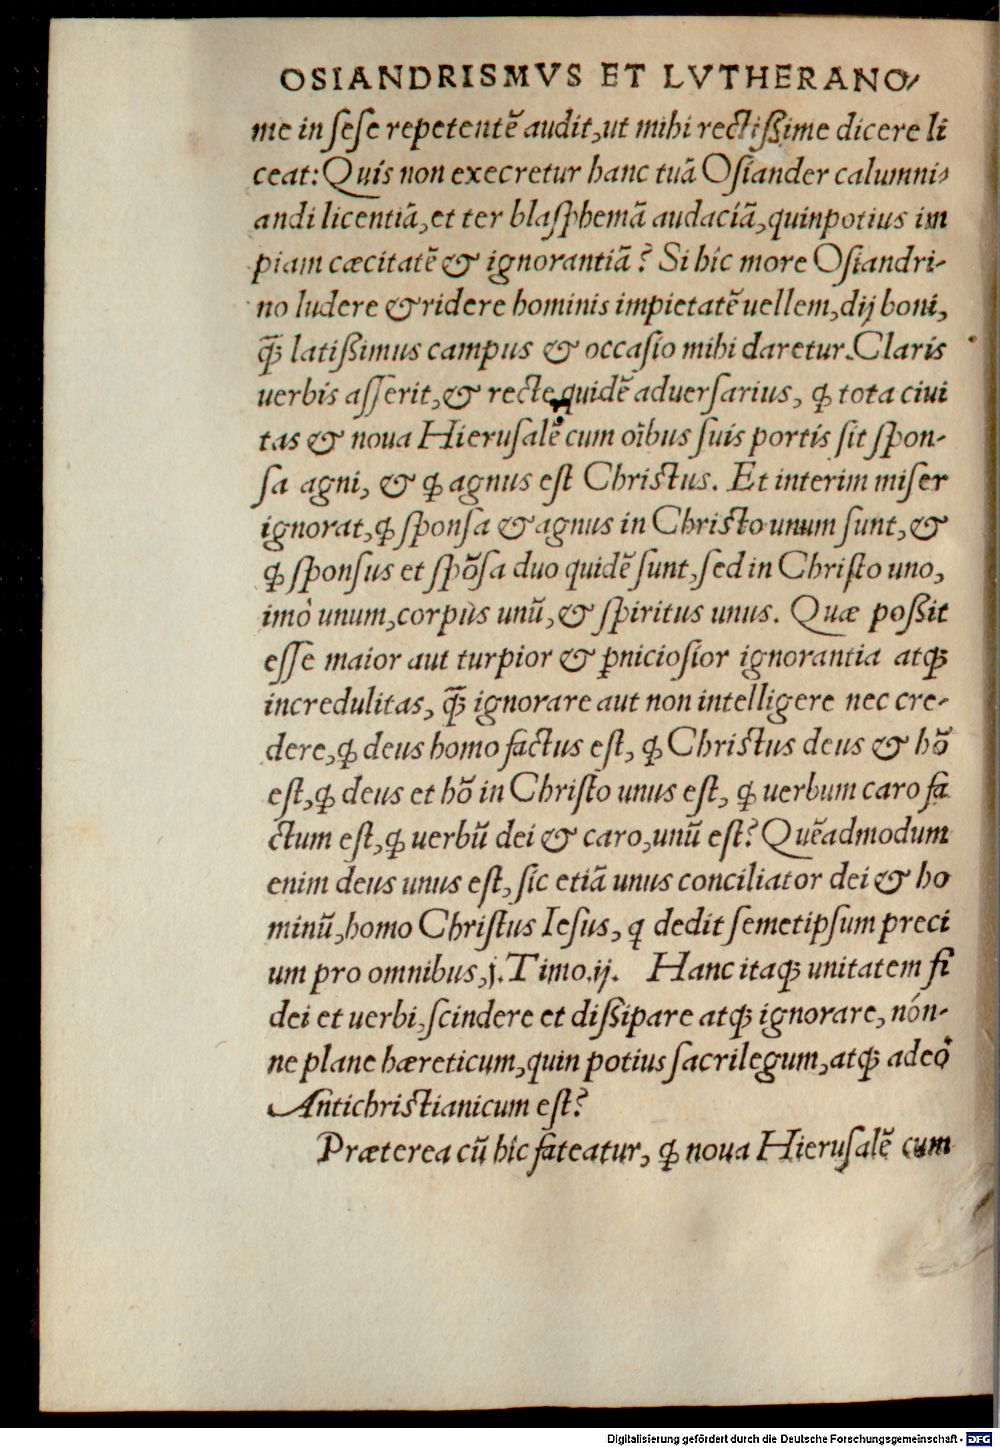 OSIANDRISMVS ET LVTHERANO-
me in ſeſe repetentẽ audit, ut mihi rectiſsime dicere li
ceat: Quis non execretur hanc tuã Oſiander calumni-
andi licentiã, et ter blaſphemã audaciã, quinpotius im
piam cæcitatẽ & ignorantiã? Si hîc more Oſiandri-
no ludere & ridere hominis impietatẽ uellem, dij boni,
q̃ʒ latiſsimus campus & occaſio mihi daretur. Claris
uerbis aſſerit, & recte quidẽ aduerſarius, ꝙ tota ciui
tas & noua Hieruſalẽ cum oĩbus ſuis portis ſit ſpon-
ſa agni, & ꝙ agnus eſt Chriſtus. Et interim miſer
ignorat, ꝙ ſponſa & agnus in Chriſto unum ſunt, &
ꝙ ſponſus et ſpõſa duo quidẽ ſunt, ſed in Chriſto uno,
imò unum, corpus unũ, & ſpiritus unus. Quæ poſsit
eſſe maior aut turpior & ꝑnicioſior ignorantia atqʒ
incredulitas, q̃ʒ ignorare aut non intelligere nec cre-
dere, ꝙ deus homo factus eſt, ꝙ Chriſtus deus & hõ
eſt, ꝙ deus et hõ in Chriſto unus eſt, ꝙ uerbum caro fa
ctum eſt, ꝙ uerbũ dei & caro, unũ eſt? Quẽadmodum
enim deus unus eſt, ſic etiã unus conciliator dei & ho
minũ, homo Chriſtus Ieſus, q dedit ſemetipſum preci
um pro omnibus, j. Timo. ij. Hanc itaqʒ unitatem fi
dei et uerbi, ſcindere et diſsipare atqʒ ignorare, nón-
ne plane hæreticum, quin potius ſacrilegum, atqʒ adeo
Antichriſtianicum eſt?
Præterea cũ hîc fateatur, ꝙ noua Hieruſalẽ cum
Digitalisierung gefördert durch die Deutsche Forschungsgemeinschaft - DFG